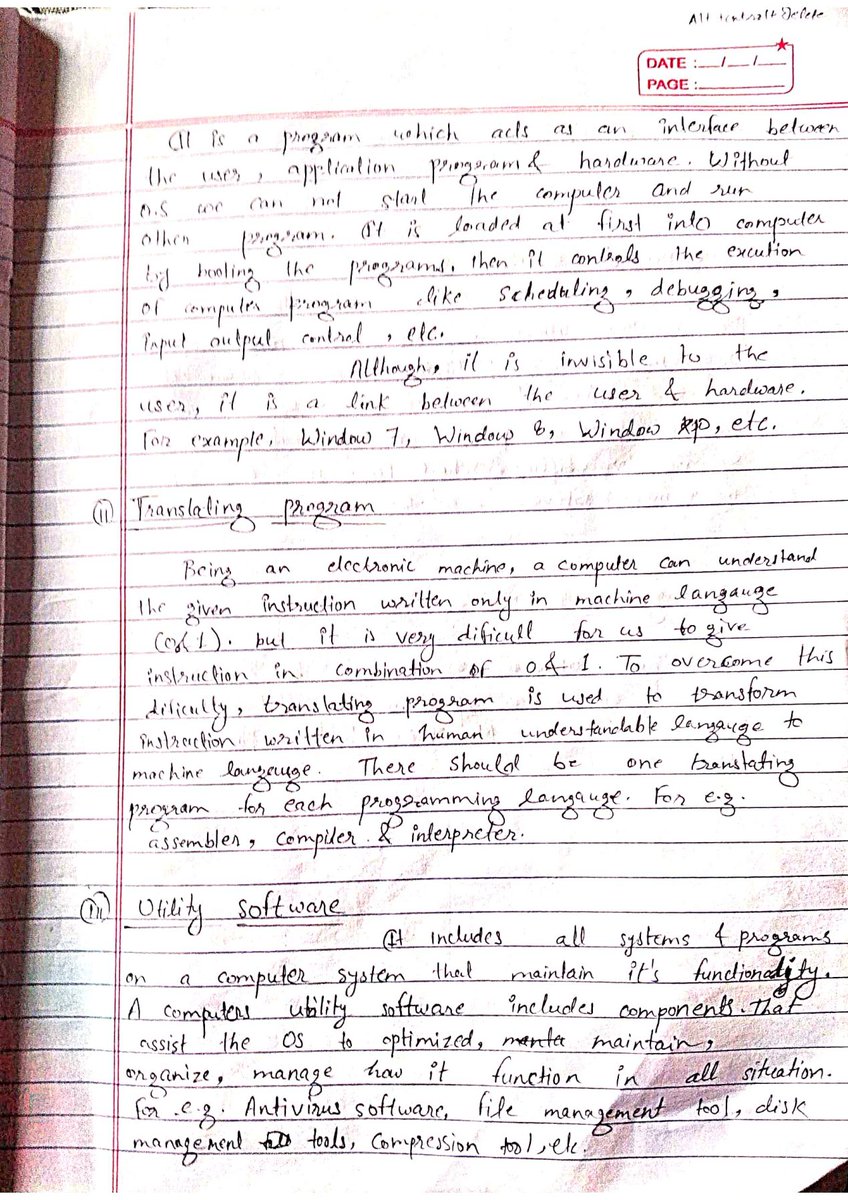 Alt + control + Delete
DATE :__/__/__
PAGE :________
It is a program which acts as an interface between
the user, application program & hardware. Without
O.S we can not start the computer and run
other program. It is loaded at first into computer
by booting the programs. then it controls the excution
of computer program like scheduling, debugging,
input output control, etc.
Although, it is invisible to the
user, it is a link between the user & hardware.
For example, Window 7, Window 8, Window xp, etc.
(ii) Translating program
Being an electronic machine, a computer can understand
the given instruction written only in machine langauge
(0&1). but it is very dificult for us to give
instruction in combination of 0 & 1. To overcome this
dificulty, translating program is used to transform
instruction written in human understandable langauge to
machine langauge. There should be one translating
program for each programming langauge. For e.g.
assembler, compiler & interpreter.
(iii) Utility software
It includes all systems & programs
on a computer system that maintain it's functionality.
A computers utility software includes components. that
assist the OS to optimized, maintain,
organize, manage how it function in all situation.
for e.g. Antivirus software, file management tool, disk
management tools, compression tool, etc.